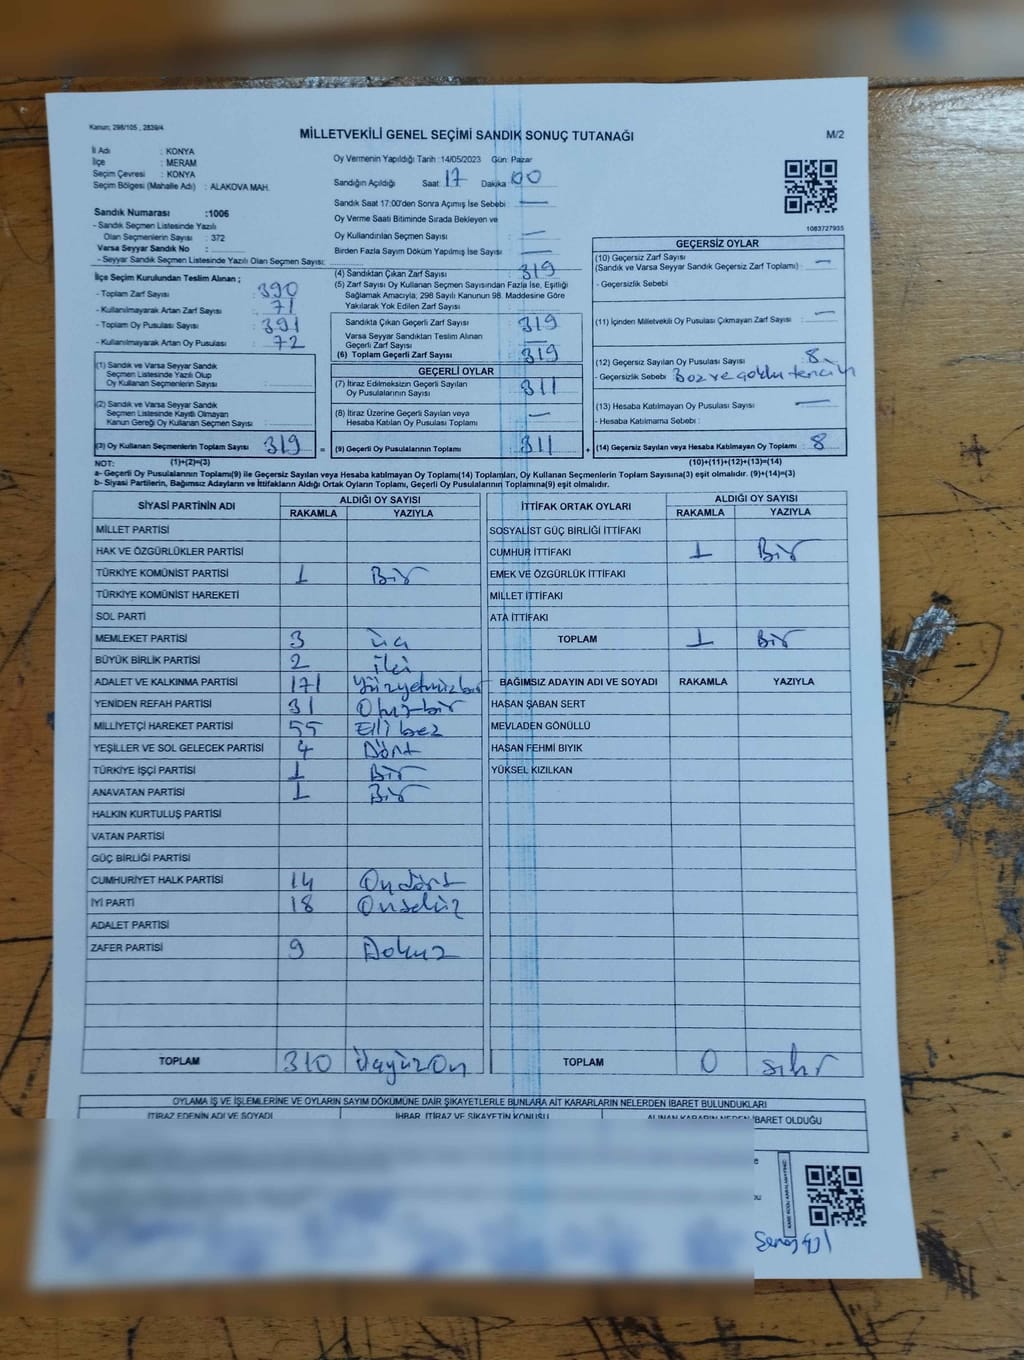 Kanun; 298/105 , 2839/4
MİLLETVEKİLİ GENEL SEÇİMİ SANDIK SONUÇ TUTANAĞI
M/2
İl Adı : KONYA
İlçe : MERAM
Seçim Çevresi : KONYA
Seçim Bölgesi (Mahalle Adı) : ALAKOVA MAH.
Oy Vermenin Yapıldığı Tarih :14/05/2023 Gün: Pazar
Sandığın Açıldığı Saat 17 Dakika 00
Sandık Saat 17:00'den Sonra Açımış İse Sebebi : —
Oy Verme Saati Bitiminde Sırada Bekleyen ve
Oy Kullandırılan Seçmen Sayısı : —
Birden Fazla Sayım Döküm Yapılmış İse Sayısı : —
Sandık Numarası :1006
- Sandık Seçmen Listesinde Yazılı
Olan Seçmenlerin Sayısı : 372
Varsa Seyyar Sandık No :
- Seyyar Sandık Seçmen Listesinde Yazılı Olan Seçmen Sayısı:
İlçe Seçim Kurulundan Teslim Alınan ;
- Toplam Zarf Sayısı : 390
- Kullanılmayarak Artan Zarf Sayısı : 71
- Toplam Oy Pusulası Sayısı : 391
- Kullanılmayarak Artan Oy Pusulası : 72
(1) Sandık ve Varsa Seyyar Sandık
Seçmen Listesinde Yazılı Olup
Oy Kullanan Seçmenlerin Sayısı :
(2) Sandık ve Varsa Seyyar Sandık
Seçmen Listesinde Kayıtlı Olmayan
Kanun Gereği Oy Kullanan Seçmen Sayısı :
(3) Oy Kullanan Seçmenlerin Toplam Sayısı : 319 =
(4) Sandıktan Çıkan Zarf Sayısı : 319
(5) Zarf Sayısı Oy Kullanan Seçmen Sayısından Fazla İse, Eşitliği
Sağlamak Amacıyla; 298 Sayılı Kanunun 98. Maddesine Göre
Yakılarak Yok Edilen Zarf Sayısı :
Sandıkta Çıkan Geçerli Zarf Sayısı : 319
Varsa Seyyar Sandıktan Teslim Alınan
Geçerli Zarf Sayısı : —
(6) Toplam Geçerli Zarf Sayısı : 319
GEÇERLİ OYLAR
(7) İtiraz Edilmeksizin Geçerli Sayılan
Oy Pusulalarının Sayısı : 311
(8) İtiraz Üzerine Geçerli Sayılan veya
Hesaba Katılan Oy Pusulası Toplamı : —
(9) Geçerli Oy Pusulalarının Toplamı : 311 +
1083727935
GEÇERSİZ OYLAR
(10) Geçersiz Zarf Sayısı
(Sandık ve Varsa Seyyar Sandık Geçersiz Zarf Toplamı) : —
- Geçersizlik Sebebi :
(11) İçinden Milletvekili Oy Pusulası Çıkmayan Zarf Sayısı : —
(12) Geçersiz Sayılan Oy Pusulası Sayısı : 8
- Geçersizlik Sebebi :
(13) Hesaba Katılmayan Oy Pusulası Sayısı : —
- Hesaba Katılmama Sebebi :
(14) Geçersiz Sayılan veya Hesaba Katılmayan Oy Toplamı : 8
NOT: (1)+(2)=(3) (10)+(11)+(12)+(13)=(14)
a- Geçerli Oy Pusulalarının Toplamı(9) ile Geçersiz Sayılan veya Hesaba katılmayan Oy Toplamı(14) Toplamları, Oy Kullanan Seçmenlerin Toplam Sayısına(3) eşit olmalıdır. (9)+(14)=(3)
b- Siyasi Partilerin, Bağımsız Adayların ve İttifakların Aldığı Ortak Oyların Toplamı, Geçerli Oy Pusulalarının Toplamına(9) eşit olmalıdır.
SİYASİ PARTİNİN ADI ALDIĞI OY SAYISI
RAKAMLA YAZIYLA
MİLLET PARTİSİ
HAK VE ÖZGÜRLÜKLER PARTİSİ
TÜRKİYE KOMÜNİST PARTİSİ 1 Bir
TÜRKİYE KOMÜNİST HAREKETİ
SOL PARTİ
MEMLEKET PARTİSİ 3 üç
BÜYÜK BİRLİK PARTİSİ 2 iki
ADALET VE KALKINMA PARTİSİ 171 Yüzyetmişbir
YENİDEN REFAH PARTİSİ 31 Otuzbir
MİLLİYETÇİ HAREKET PARTİSİ 55 Elli beş
YEŞİLLER VE SOL GELECEK PARTİSİ 4 Dört
TÜRKİYE İŞÇİ PARTİSİ 1 Bir
ANAVATAN PARTİSİ 1 Bir
HALKIN KURTULUŞ PARTİSİ
VATAN PARTİSİ
GÜÇ BİRLİĞİ PARTİSİ
CUMHURİYET HALK PARTİSİ 14 Ondört
İYİ PARTİ 18 Onsekiz
ADALET PARTİSİ
ZAFER PARTİSİ 9 Dokuz
TOPLAM 310 Üçyüzon
İTTİFAK ORTAK OYLARI ALDIĞI OY SAYISI
RAKAMLA YAZIYLA
SOSYALİST GÜÇ BİRLİĞİ İTTİFAKI
CUMHUR İTTİFAKI 1 Bir
EMEK VE ÖZGÜRLÜK İTTİFAKI
MİLLET İTTİFAKI
ATA İTTİFAKI
TOPLAM 1 Bir
BAĞIMSIZ ADAYIN ADI VE SOYADI RAKAMLA YAZIYLA
HASAN ŞABAN SERT
MEVLADEN GÖNÜLLÜ
HASAN FEHMİ BIYIK
YÜKSEL KIZILKAN
TOPLAM 0 sıfır
OYLAMA İŞ VE İŞLEMLERİNE VE OYLARIN SAYIM DÖKÜMÜNE DAİR ŞİKAYETLERLE BUNLARA AİT KARARLARIN NELERDEN İBARET BULUNDUKLARI
İTİRAZ EDENİN ADI VE SOYADI İHBAR, İTİRAZ VE ŞİKAYETİN KONUSU ALINAN KARARIN NEDEN İBARET OLDUĞU